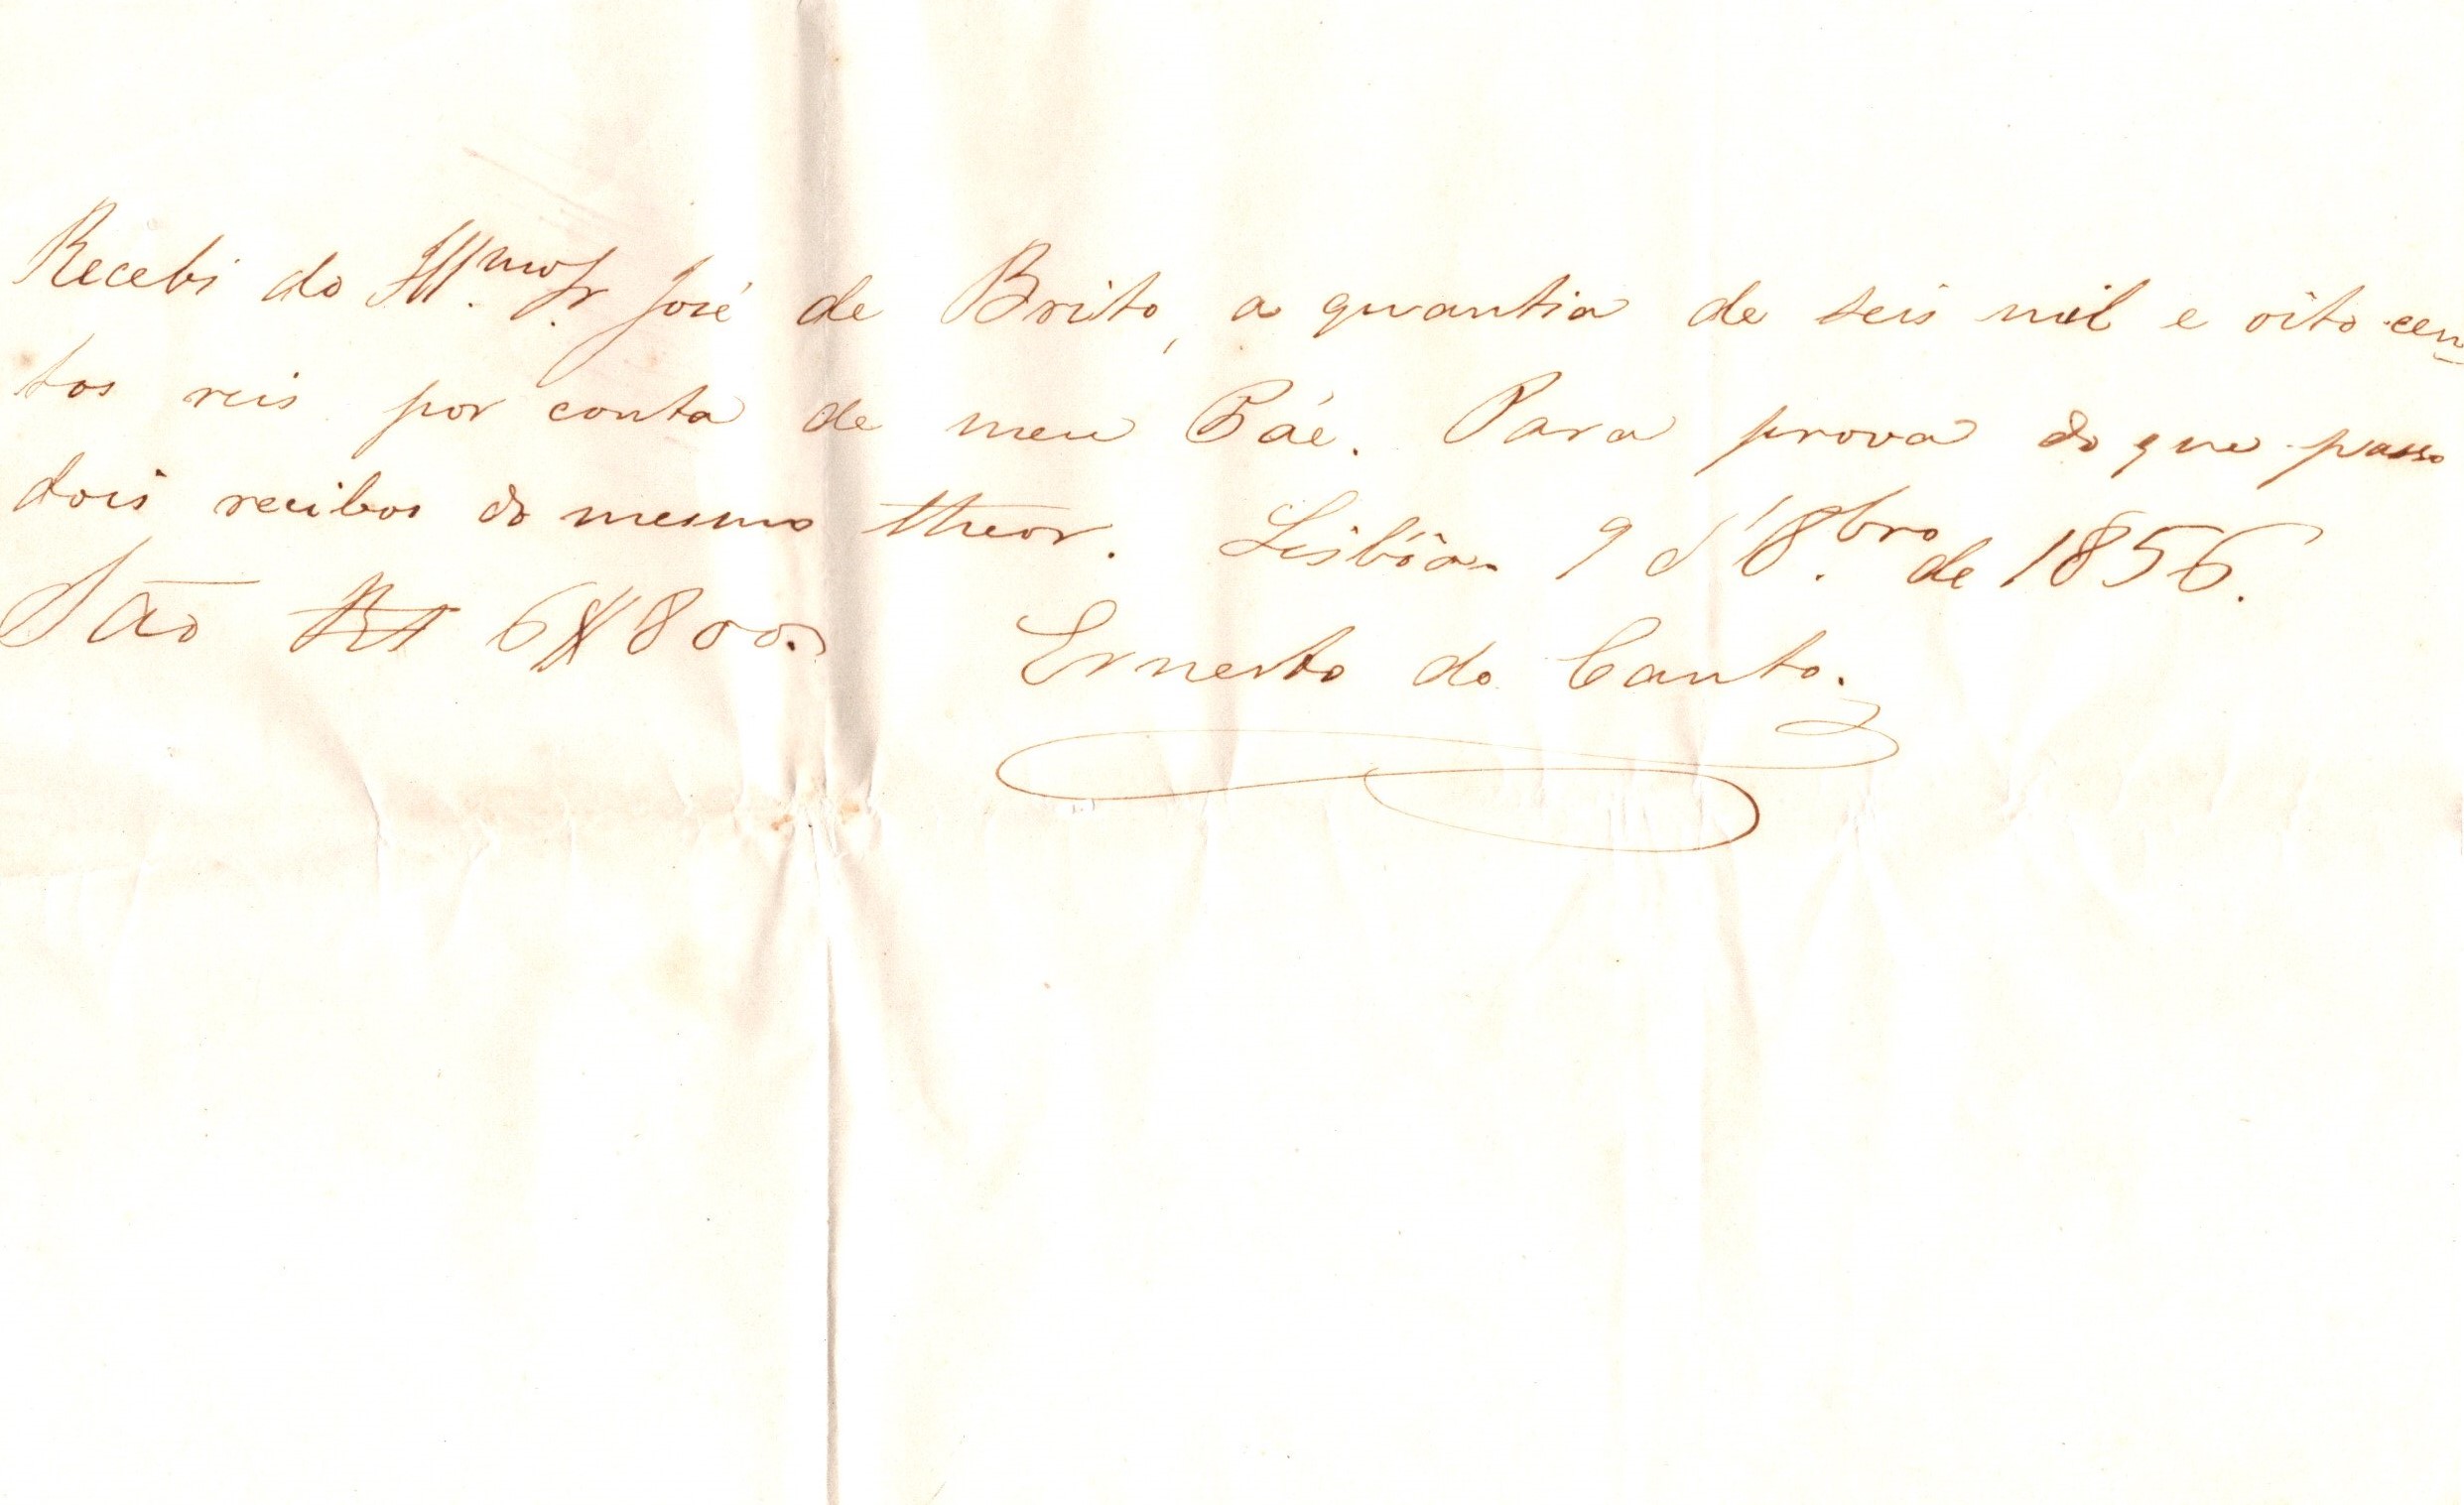 Recebi do Ill.mo Sr. José de Brito, a quantia de seis mil e oito cen-
tos reis por conta de meu Páe. Para prova do que passo
dois recibos do mesmo theor. Lisbôa 9 d'8.bro de 1856.
São Rs 6$800.
Ernesto do Canto.